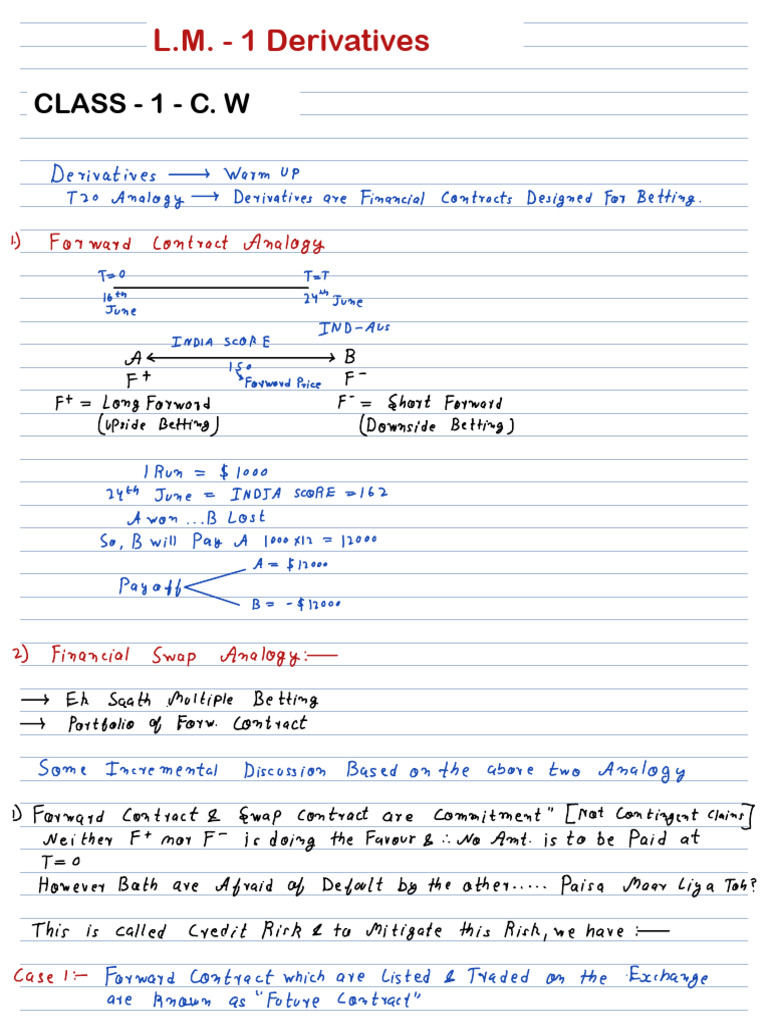 L.M. - 1 Derivatives
CLASS - 1 - C. W
Derivatives → Warm UP
T20 Analogy → Derivatives are Financial Contracts Designed For Betting.
1.) Forward Contract Analogy
T=0 T=T
16th June 24th June
IND-Aus
INDIA SCORE
A ↔ B
150
F+ Forward Price F-
F+ = Long Forward F- = Short Forward
(Upside Betting) (Downside Betting)
1 Run = $1000
24th June = INDIA SCORE = 162
A won ...B Lost
So, B will Pay A 1000×12 = 12000
A = $12000
Payoff
B = -$12000
2) Financial Swap Analogy:—
→ Ek Saath Multiple Betting
→ Portfolio of Forw. Contract
Some Incremental Discussion Based on the above two Analogy
1) Forward Contract & Swap Contract are Commitment" [Not Contingent Claims]
Neither F+ nor F- is doing the Favour & ∴ No Amt. is to be Paid at
T=0
However Both are Afraid of Default by the other..... Paisa Maar Liya Toh?
This is called Credit Risk & to Mitigate this Risk, we have :—
Case 1:- Forward Contract which are Listed & Traded on the Exchange
are Known as "Future Contract"